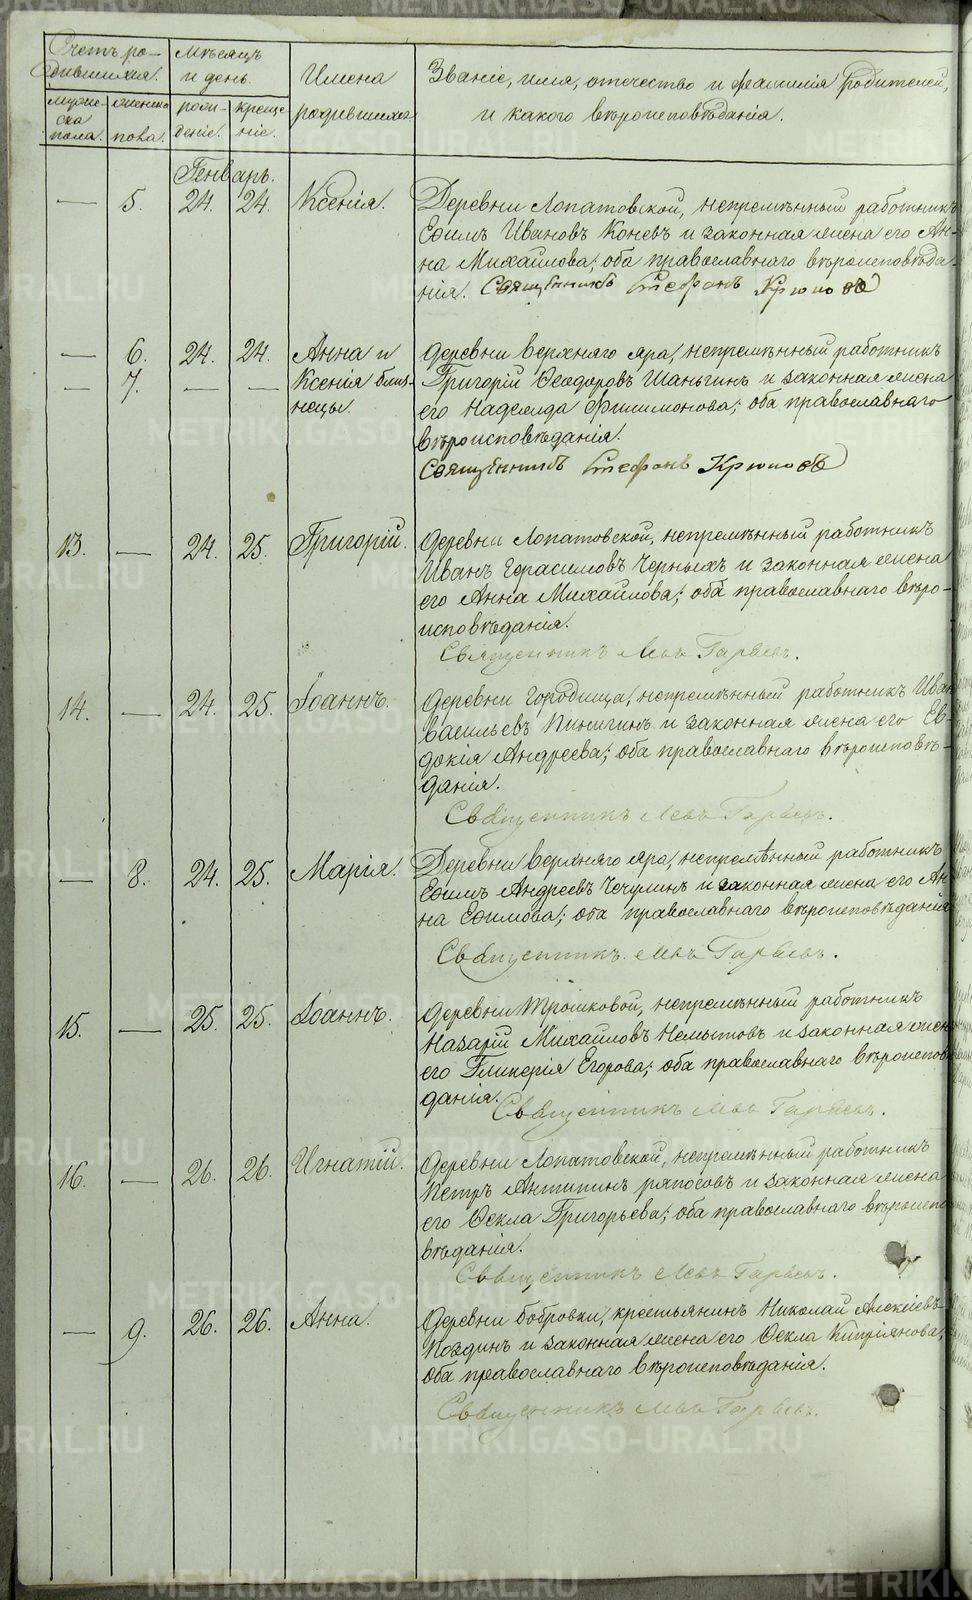 Счетъ ро-
дившихся.
Мѣсяцъ
и день.
Имена
родившихся
Званіе, имя, отечество и фамилія родителей,
и какого вѣроисповѣданія.
муже-
ска
пола.
женска
пола.
рож-
деніе.
креще
ніе.
Генварь.
— 5. 24. 24. Ксенія. Деревни Лопатовской, непремѣнный работникъ
Ефимъ Ивановъ Коневъ и законная жена его Ан-
на Михайлова; оба православнаго вѣроисповѣда-
нія. Священникъ Стефанъ Крюковъ
— 6. 24. 24. Анна и Деревни Верхняго яра, непремѣнный работникъ
— 7. — — Ксенія близ- Григорій Ѳеодоровъ Шаньгинъ и законная жена
нецы. его Надежда Филимонова; оба православнаго
вѣроисповѣданія.
Священникъ Стефанъ Крюковъ
13. — 24. 25. Григорій. Деревни Лопатовской, непремѣнный работникъ
Иванъ Герасимовъ Черныхъ и законная жена
его Анна Михайлова; оба православнаго вѣро-
исповѣданія.
Священникъ Левъ Гаряевъ.
14. — 24. 25. Іоаннъ. Деревни Городища, непремѣнный работникъ Иван
Васильевъ Пинигинъ и законная жена его Ев-
докія Андреева; оба православнаго вѣроисповѣ-
данія.
Священникъ Левъ Гаряевъ.
— 8. 24. 25. Марія. Деревни Верхняго яра, непремѣнный работникъ
Ефимъ Андреевъ Чечулинъ и законная жена его Ан
на Ефимова; оба православнаго вѣроисповѣданія
Священникъ Левъ Гаряевъ.
15. — 25. 25. Іоаннъ. Деревни Трошковой, непремѣнный работникъ
Назарій Михайловъ Немытовъ и законная жен
его Гликерія Егорова; оба православнаго вѣроисповѣ
данія. Священникъ Левъ Гаряевъ.
16. — 26. 26. Игнатій. Деревни Лопатовской, непремѣнный работникъ
Петръ Антипинъ Ряпосовъ и законная жена
его Ѳекла Григорьева; оба православнаго вѣроиспо
вѣданія.
Священникъ Левъ Гаряевъ.
— 9. 26. 26. Анна. Деревни Бобровки, крестьянинъ Николай Алексѣевъ
и законная жена его Ѳекла Кипріянова;
оба православнаго вѣроисповѣданія.
Священникъ Левъ Гаряевъ.
METRIKI.GASO-URAL.RU